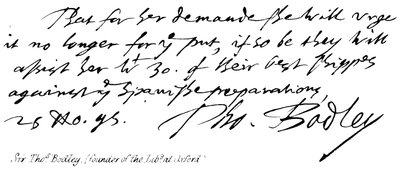 That for her demande she will urge
it no longer for yͤ pnt, if so be they will
assist her wᵗ 30. of their best shippes
against yͤ Spanishe preparations,
25 No. 95. Tho. Bodley
Sir Thoˢ Bodley, founder of the Libʸ at Oxford